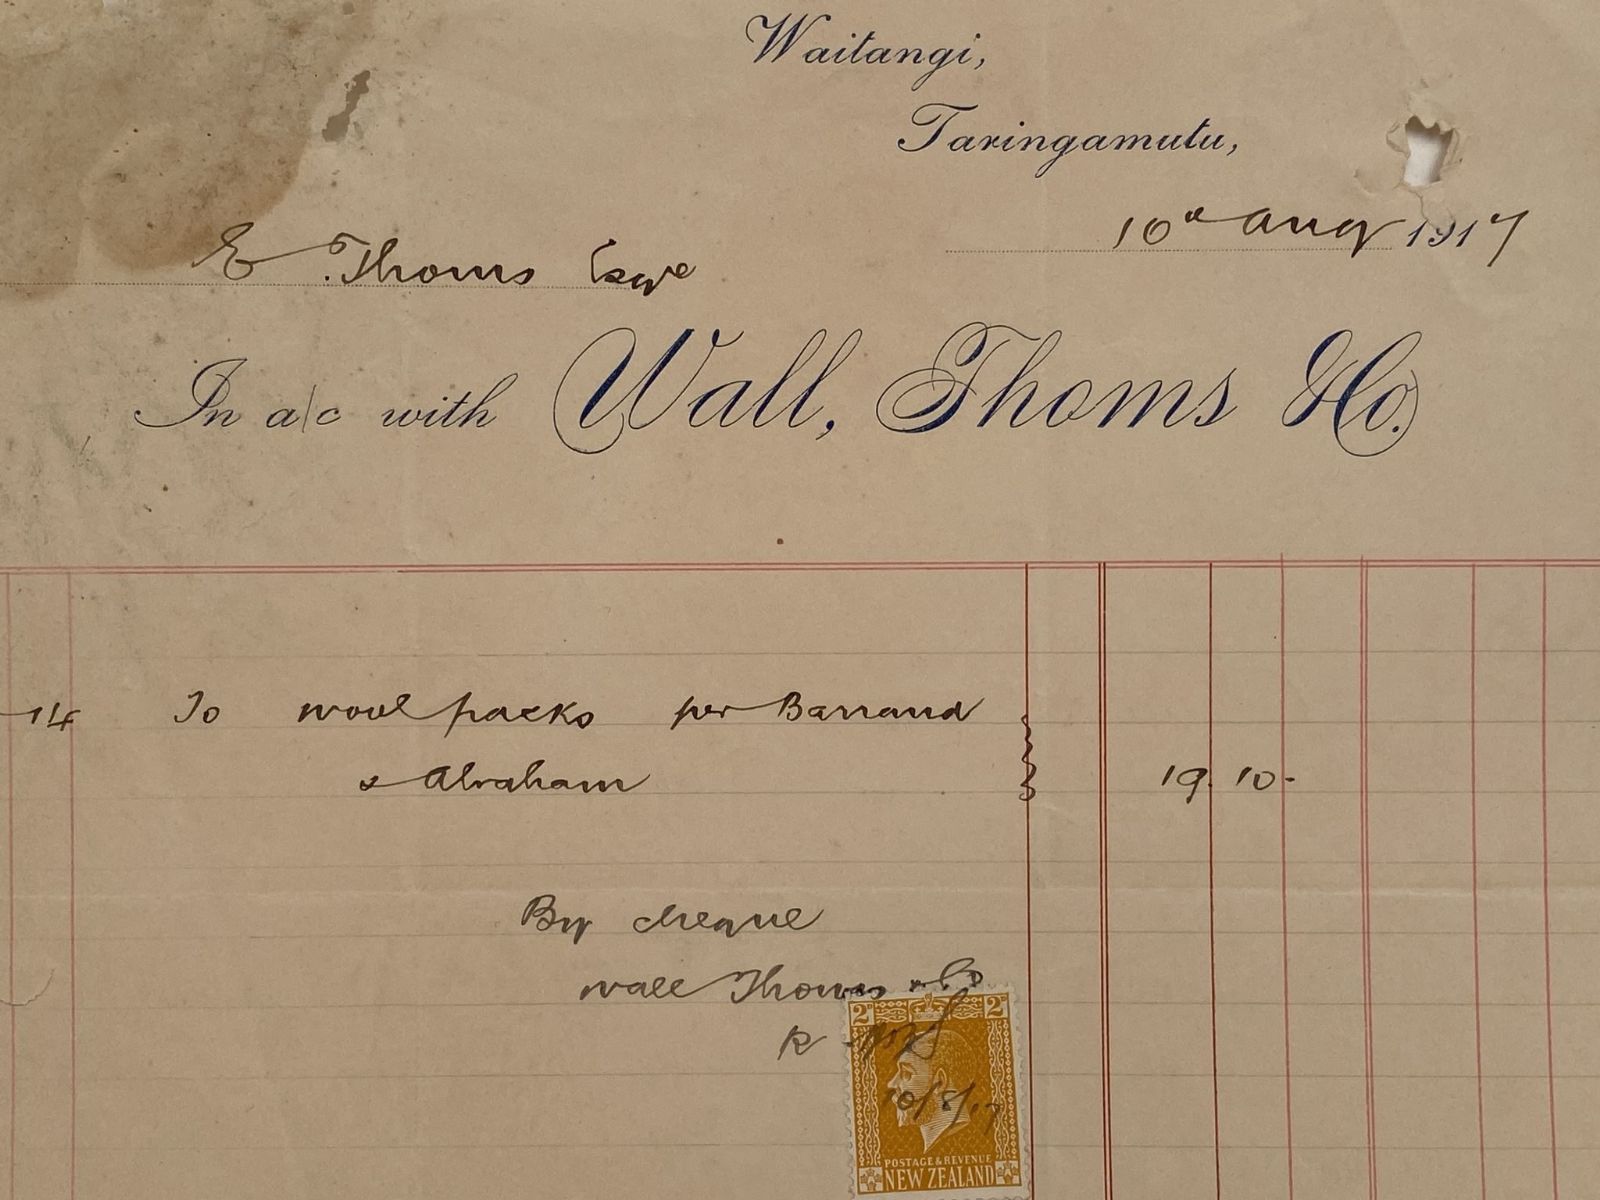 Waitangi,
Taringamutu,
10th Aug 1917
E Thoms Esqre
In a/c with Wall, Thoms & Co.
14 To wool packs per Barraud
& Abraham 19. 10 -
By cheque
Wall Thoms & Co
2D 2D
10/8/17
POSTAGE & REVENUE
NEW ZEALAND